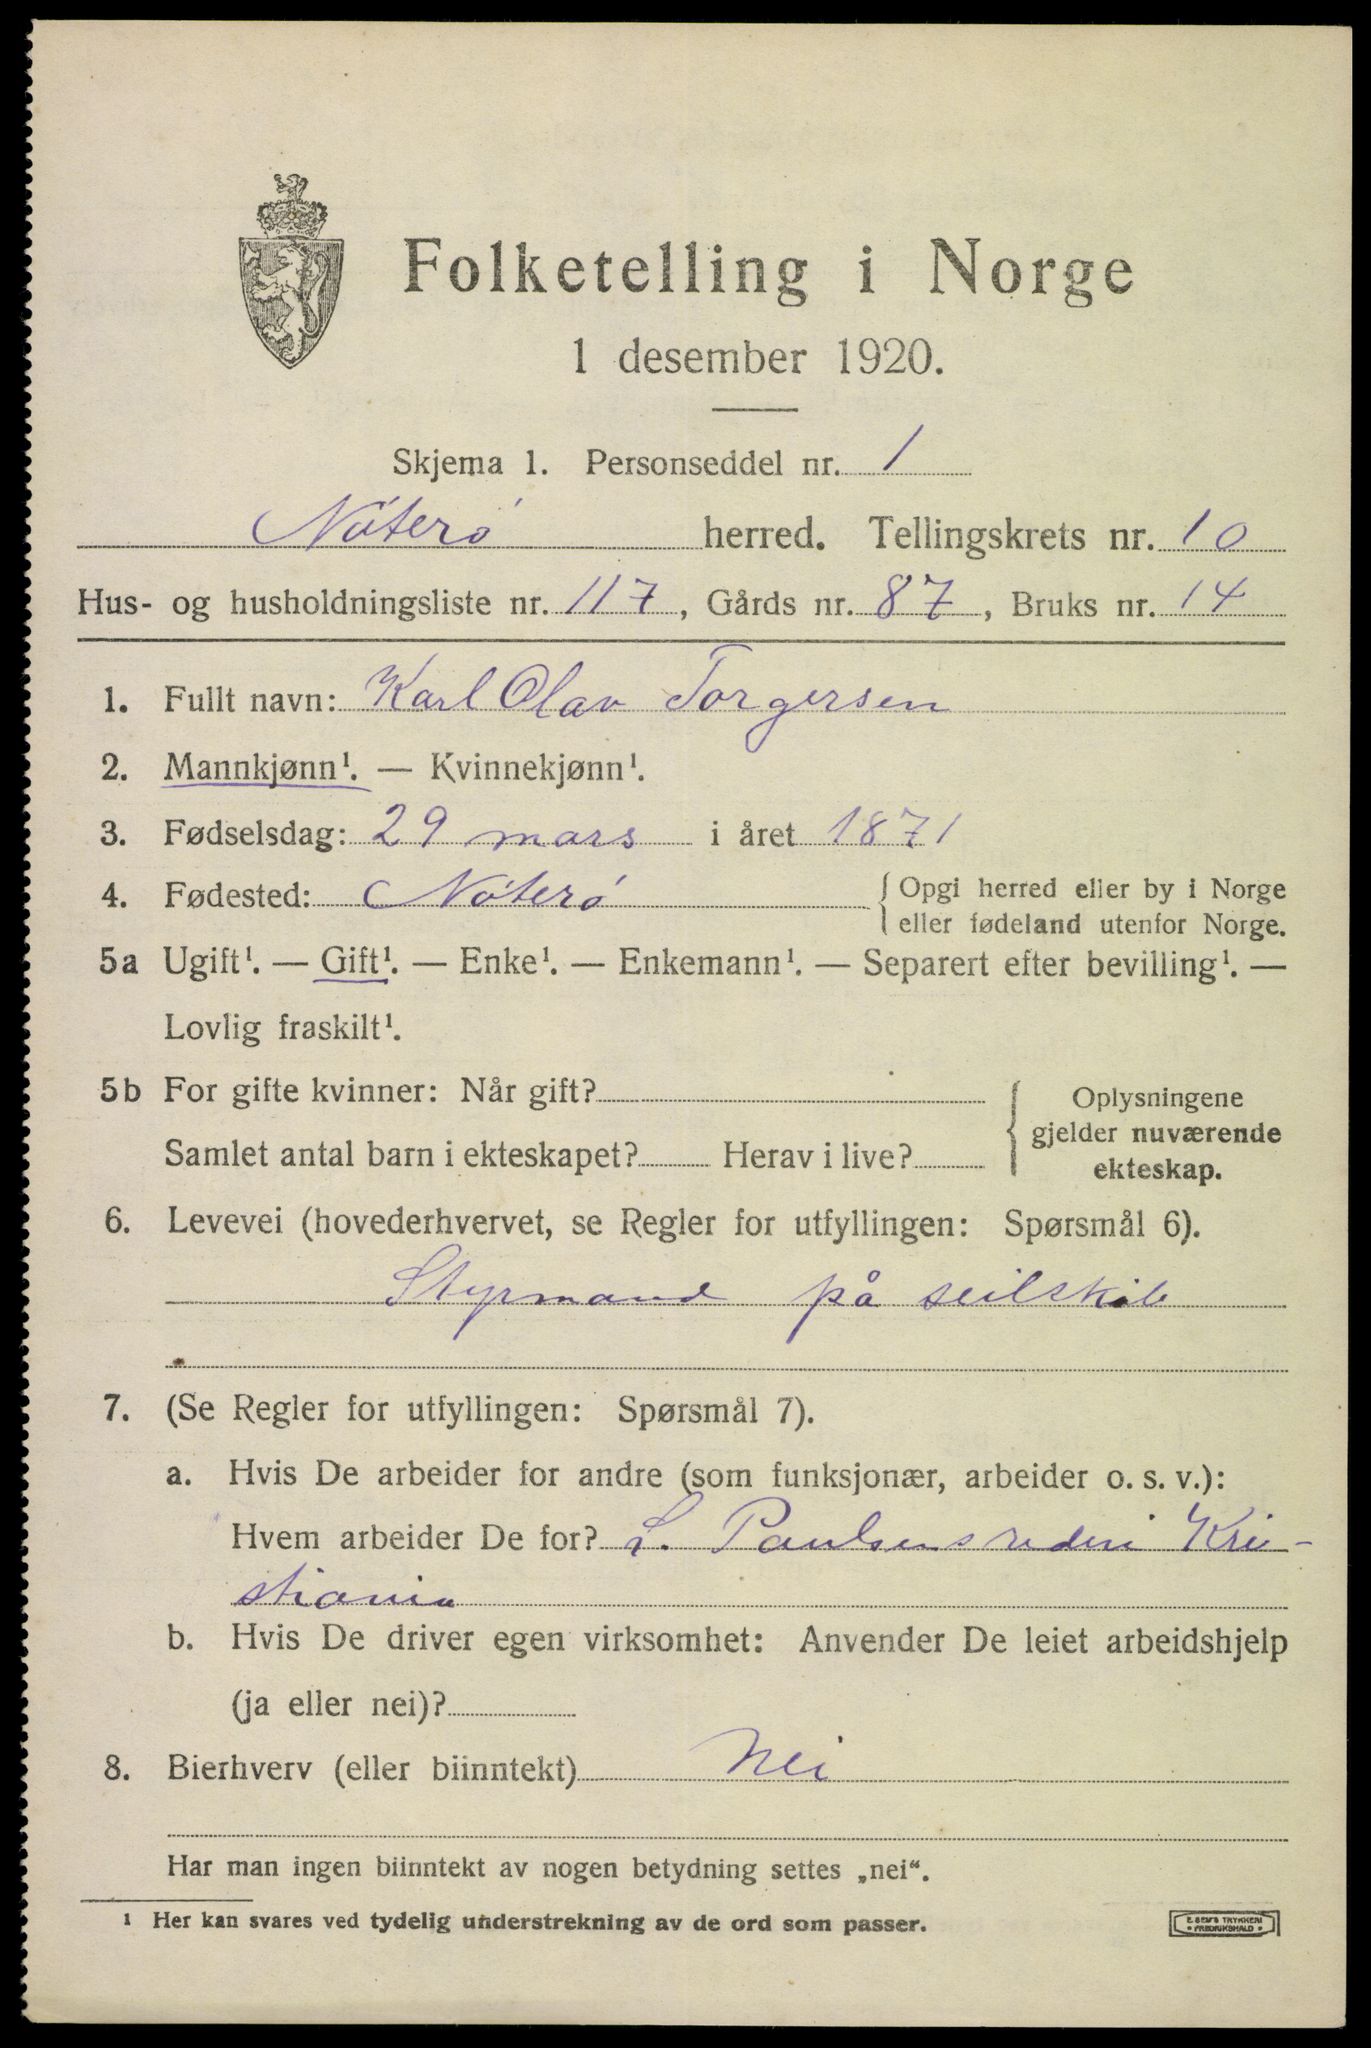 Folketelling i Norge
1 desember 1920.
Skjema 1. Personseddel nr. 1
Nøterø herred. Tellingskrets nr. 10
Hus- og husholdningsliste nr. 117, Gårds nr. 87, Bruks nr. 14
1. Fullt navn: Karl Olav Torgersen
2. Mannkjønn¹. — Kvinnekjønn¹.
3. Fødselsdag: 29 mars i året 1871
4. Fødested: Nøterø { Opgi herred eller by i Norge
eller fødeland utenfor Norge.
5a Ugift¹. — Gift¹. — Enke¹. — Enkemann¹. — Separert efter bevilling¹. —
Lovlig fraskilt¹.
5b For gifte kvinner: Når gift?
Samlet antal barn i ekteskapet? Herav i live?
Oplysningene
gjelder nuværende
ekteskap.
6. Levevei (hovederhvervet, se Regler for utfyllingen: Spørsmål 6).
Styrmand på seilskib
7. (Se Regler for utfyllingen: Spørsmål 7).
a. Hvis De arbeider for andre (som funksjonær, arbeider o. s. v.):
Hvem arbeider De for? S. Paulsens rederi Kri-
stiania
b. Hvis De driver egen virksomhet: Anvender De leiet arbeidshjelp
(ja eller nei)?
8. Bierhverv (eller biinntekt) Nei
Har man ingen biinntekt av nogen betydning settes „nei“.
¹ Her kan svares ved tydelig understrekning av de ord som passer.
E. SEM'S TRYKKERI
* FREDRIKSHALD *